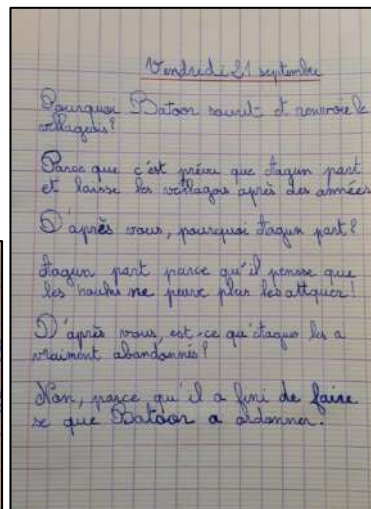 Vendredi 21 septembre
Pourquoi Batoor sourit et renvoie le
villageois?
Parce que c'est prévu que Tagun part
et laisse les villagois après des années
D'après vous, pourquoi Tagun part?
Tagun part parce qu'il pensse que
les ne peuve plus les attquer!
D'après vous, est-ce qu'Tagun les a
vraiment abandonnés?
Non, parce qu'il a fini de faire
se que Batoor a ordonner.